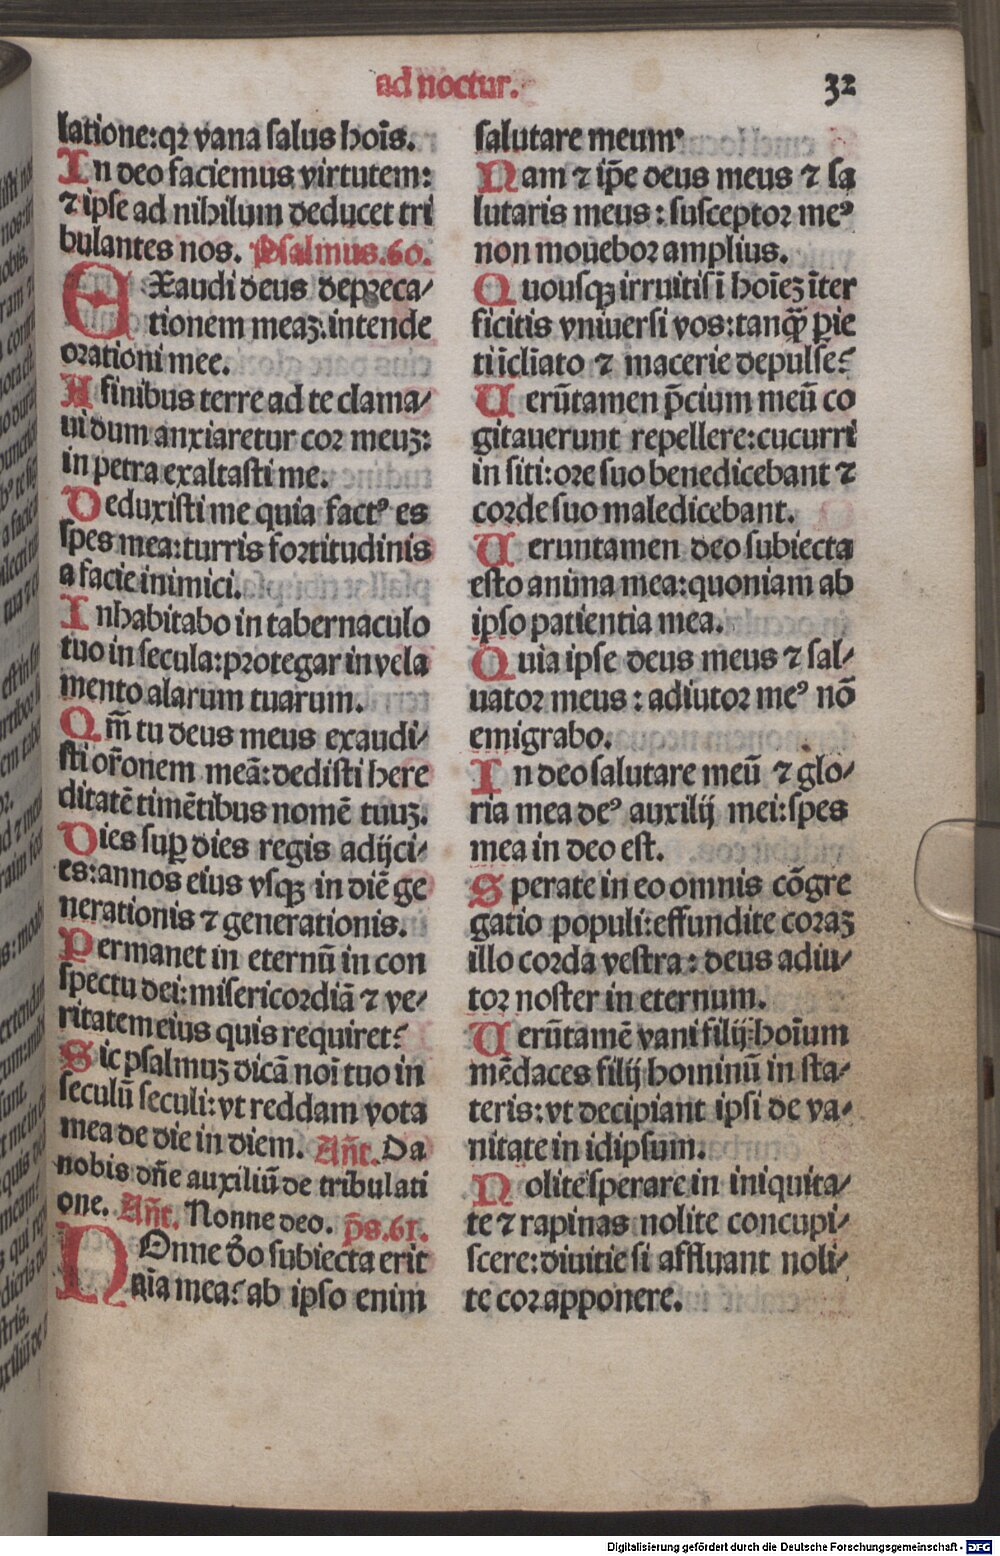 ad noctur.
32
latione: qꝛ vana salus hoĩs.
In deo faciemus virtutem:
⁊ ipse ad nihilum deducet tri
bulantes nos. Psalmus.60.
EXaudi deus depreca⸗
tionem meaꝫ. intende
orationi mee.
A finibus terre ad te clama⸗
ui dum anxiaretur cor meuꝫ:
in petra exaltasti me.
Deduxisti me quia factꝰ es
spes mea: turris fortitudinis
a facie inimici.
Inhabitabo in tabernaculo
tuo in secula: protegar in vela
mento alarum tuarum.
Qm̃ tu deus meus exaudi⸗
sti or̃onem meã: dedisti here
ditatẽ timẽtibus nomẽ tuuꝫ.
Dies suꝑ dies regis adijci⸗
es: annos eius vsqꝫ in diẽ ge
nerationis ⁊ generationis.
Permanet in eternũ in con
spectu dei: misericordiã ⁊ ve⸗
ritatem eius quis requiret?
Sic psalmuꝫ dicã noĩ tuo in
seculũ seculi: vt reddam vota
mea de die in diem. Añt. Da
nobis dñe auxiliũ de tribulati
one. Añt. Nonne deo. p̃s.61.
NOnne d̃o subiecta erit
aĩa mea? ab ipso enim
salutare meum.
Nam ⁊ ip̃e deus meus ⁊ sa
lutaris meus: susceptor meꝰ
non mouebor amplius.
Quousqꝫ irruitis ĩ hoĩeꝫ ĩter
ficitis vniuersi vos: tanqꝫ̃ ꝑie
ti ĩclĩato ⁊ macerie depulse?
Uerũtamen p̃cium meũ co
gitauerunt repellere: cucurri
in siti: ore suo benedicebant ⁊
corde suo maledicebant.
Ueruntamen deo subiecta
esto anima mea: quoniam ab
ipso patientia mea.
Quia ipse deus meus ⁊ sal⸗
uator meus: adiutor meꝰ nõ
emigrabo.
In deo salutare meũ ⁊ glo⸗
ria mea deꝰ auxilij mei: spes
mea in deo est.
Sperate in eo omnis cõgre
gatio populi: effundite coraꝫ
illo corda vestra: deus adiu⸗
tor noster in eternum.
Uerũtamẽ vani filij hoĩum
mẽdaces filij hominũ in sta⸗
teris: vt decipiant ipsi de va⸗
nitate in idipsum.
Nolite sperare in iniquita⸗
te ⁊ rapinas nolite concupi⸗
scere: diuitie si affluant noli⸗
te cor apponere.
Digitalisierung gefördert durch die Deutsche Forschungsgemeinschaft - DFG